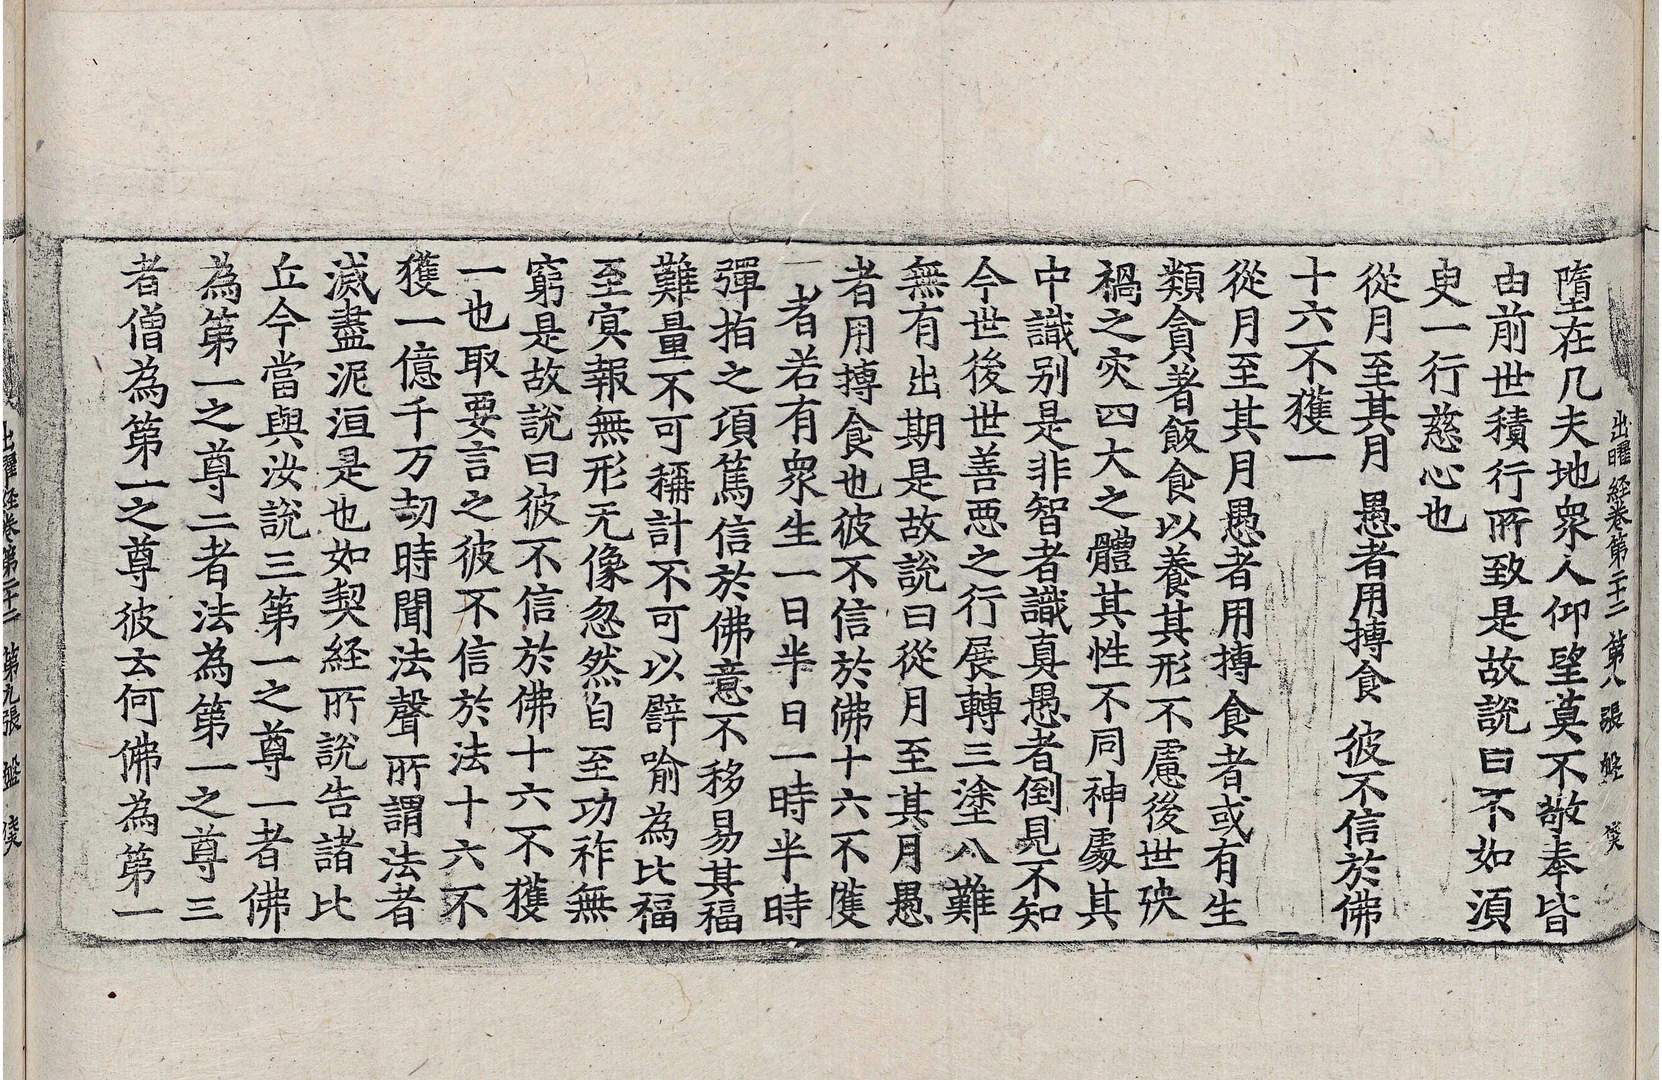 出曜經卷第二十二 第八張 盤
隨在凡夫地衆人仰望莫不敬奉皆
由前世積行所致是故說曰不如須
臾一行慈心也
從月至其月 愚者用摶食 彼不信於佛
十六不獲一
從月至其月愚者用摶食者或有生
類貪著飯食以養其形不慮後世殃
禍之灾四大之體其性不同神處其
中識別是非智者識真愚者倒見不知
今世後世善惡之行展轉三塗八難
無有出期是故說曰從月至其月愚
者用摶食也彼不信於佛十六不獲
一者若有衆生一日半日一時半時
彈指之項篤信於佛意不移易其福
難量不可稱計不可以譬喻為比福
至冥報無形无像忽然自至功祚無
窮是故說曰彼不信於佛十六不獲
一也取要言之彼不信於法十六不
獲一億千万劫時聞法聲所謂法者
滅盡泥洹是也如契經所說告諸比
丘今當與汝說三第一之尊一者佛
為第一之尊二者法為第一之尊三
者僧為第一之尊彼云何佛為第一
出曜經卷第二十二 第九張 盤